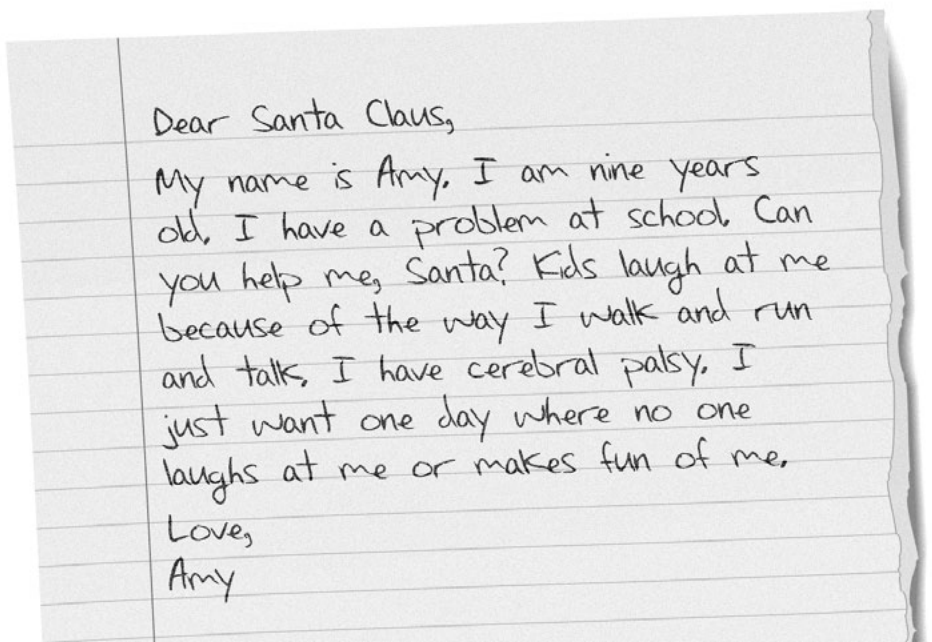 Dear Santa Claus,
My name is Amy. I am nine years
old. I have a problem at school. Can
you help me, Santa? Kids laugh at me
because of the way I walk and run
and talk. I have cerebral palsy. I
just want one day where no one
laughs at me or makes fun of me.
Love,
Amy